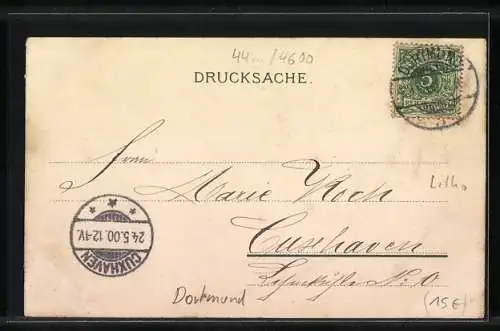 44... / 4600
DRUCKSACHE.
DORTMUND
5
Marie Koch
Litho
Cuxhaven
24.5.00.12-1V.
CUXHAVEN
Dortmund
No. 0
(15€)